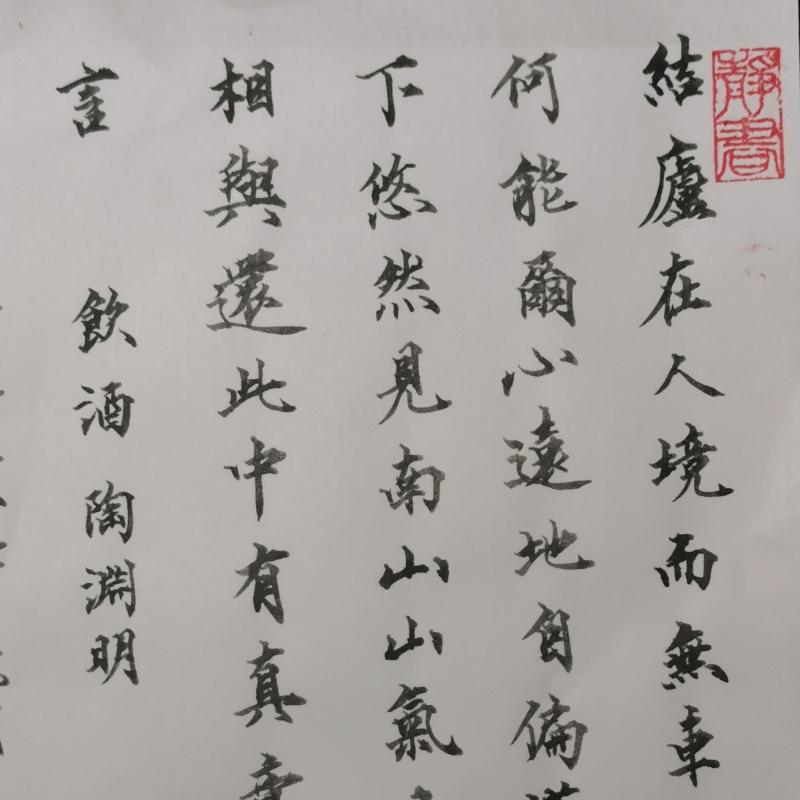 靜書
結廬在人境而無車
何能爾心遠地自偏
下悠然見南山山氣
相與還此中有真意
言 飲酒 陶淵明